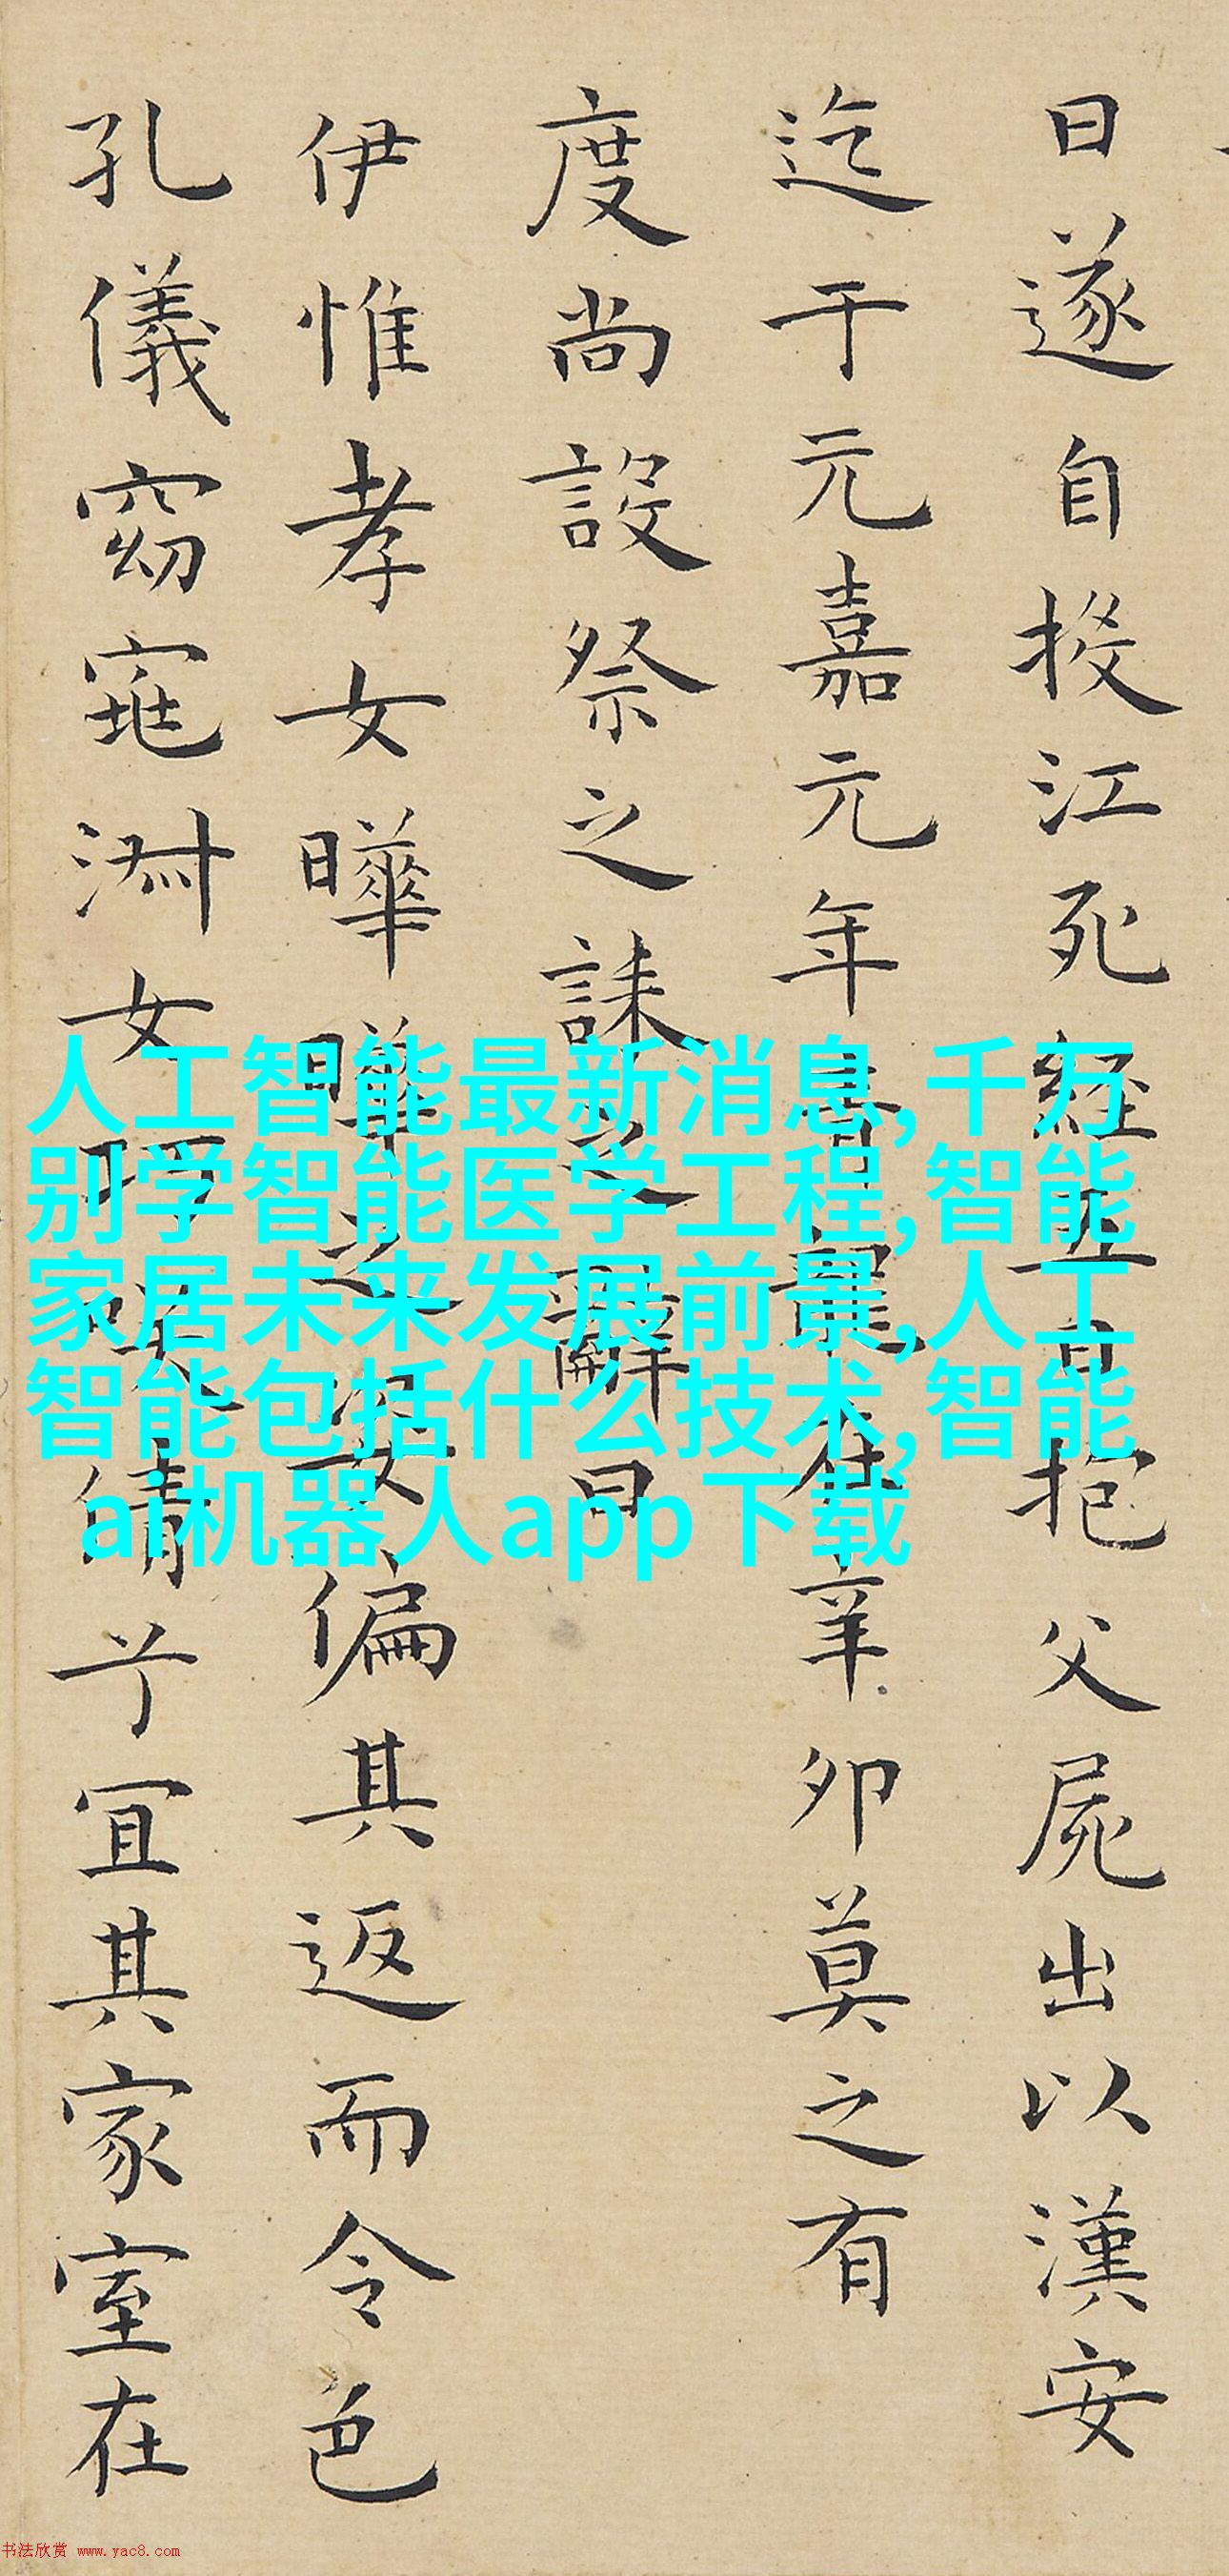 日遂自投江死經五日抱父屍出以漢安
迄于元嘉元年青龍在辛卯莫之有
度尚設祭之誄之辭曰
伊惟孝女曄曄之姿偏其返而令色
孔儀窈窕淑女巧咲倩兮宜其家室在
人工智能最新消息,千万
别学智能医学工程,智能
家居未来发展前景,人工
智能包括什么技术,智能
ai机器人app下载
书法欣赏 www.yac8.com